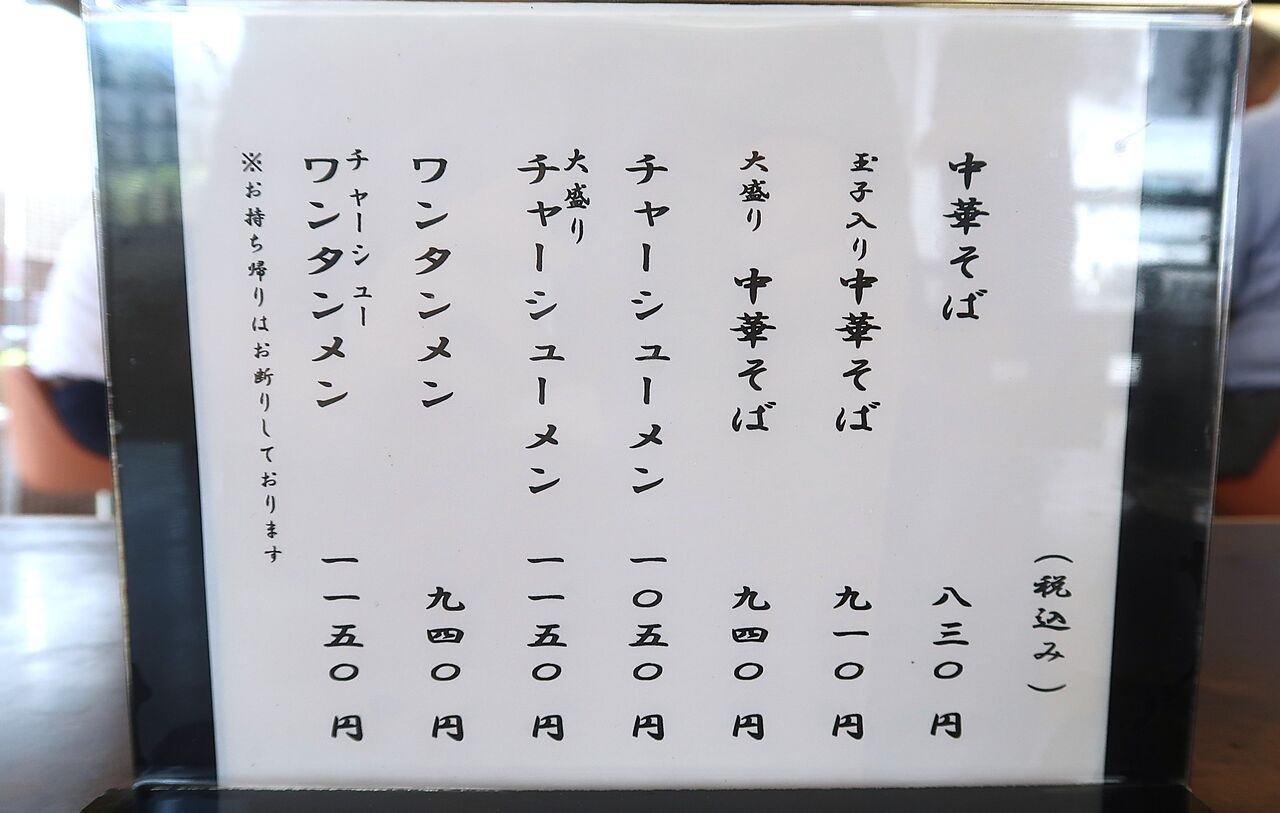 （税込み）
中華そば 八三〇円
玉子入り中華そば 九一〇円
大盛り 中華そば 九四〇円
チャーシューメン 一〇五〇円
大盛り
チャーシューメン 一一五〇円
ワンタンメン 九四〇円
チャーシュー
ワンタンメン 一一五〇円
※お持ち帰りはお断りしております